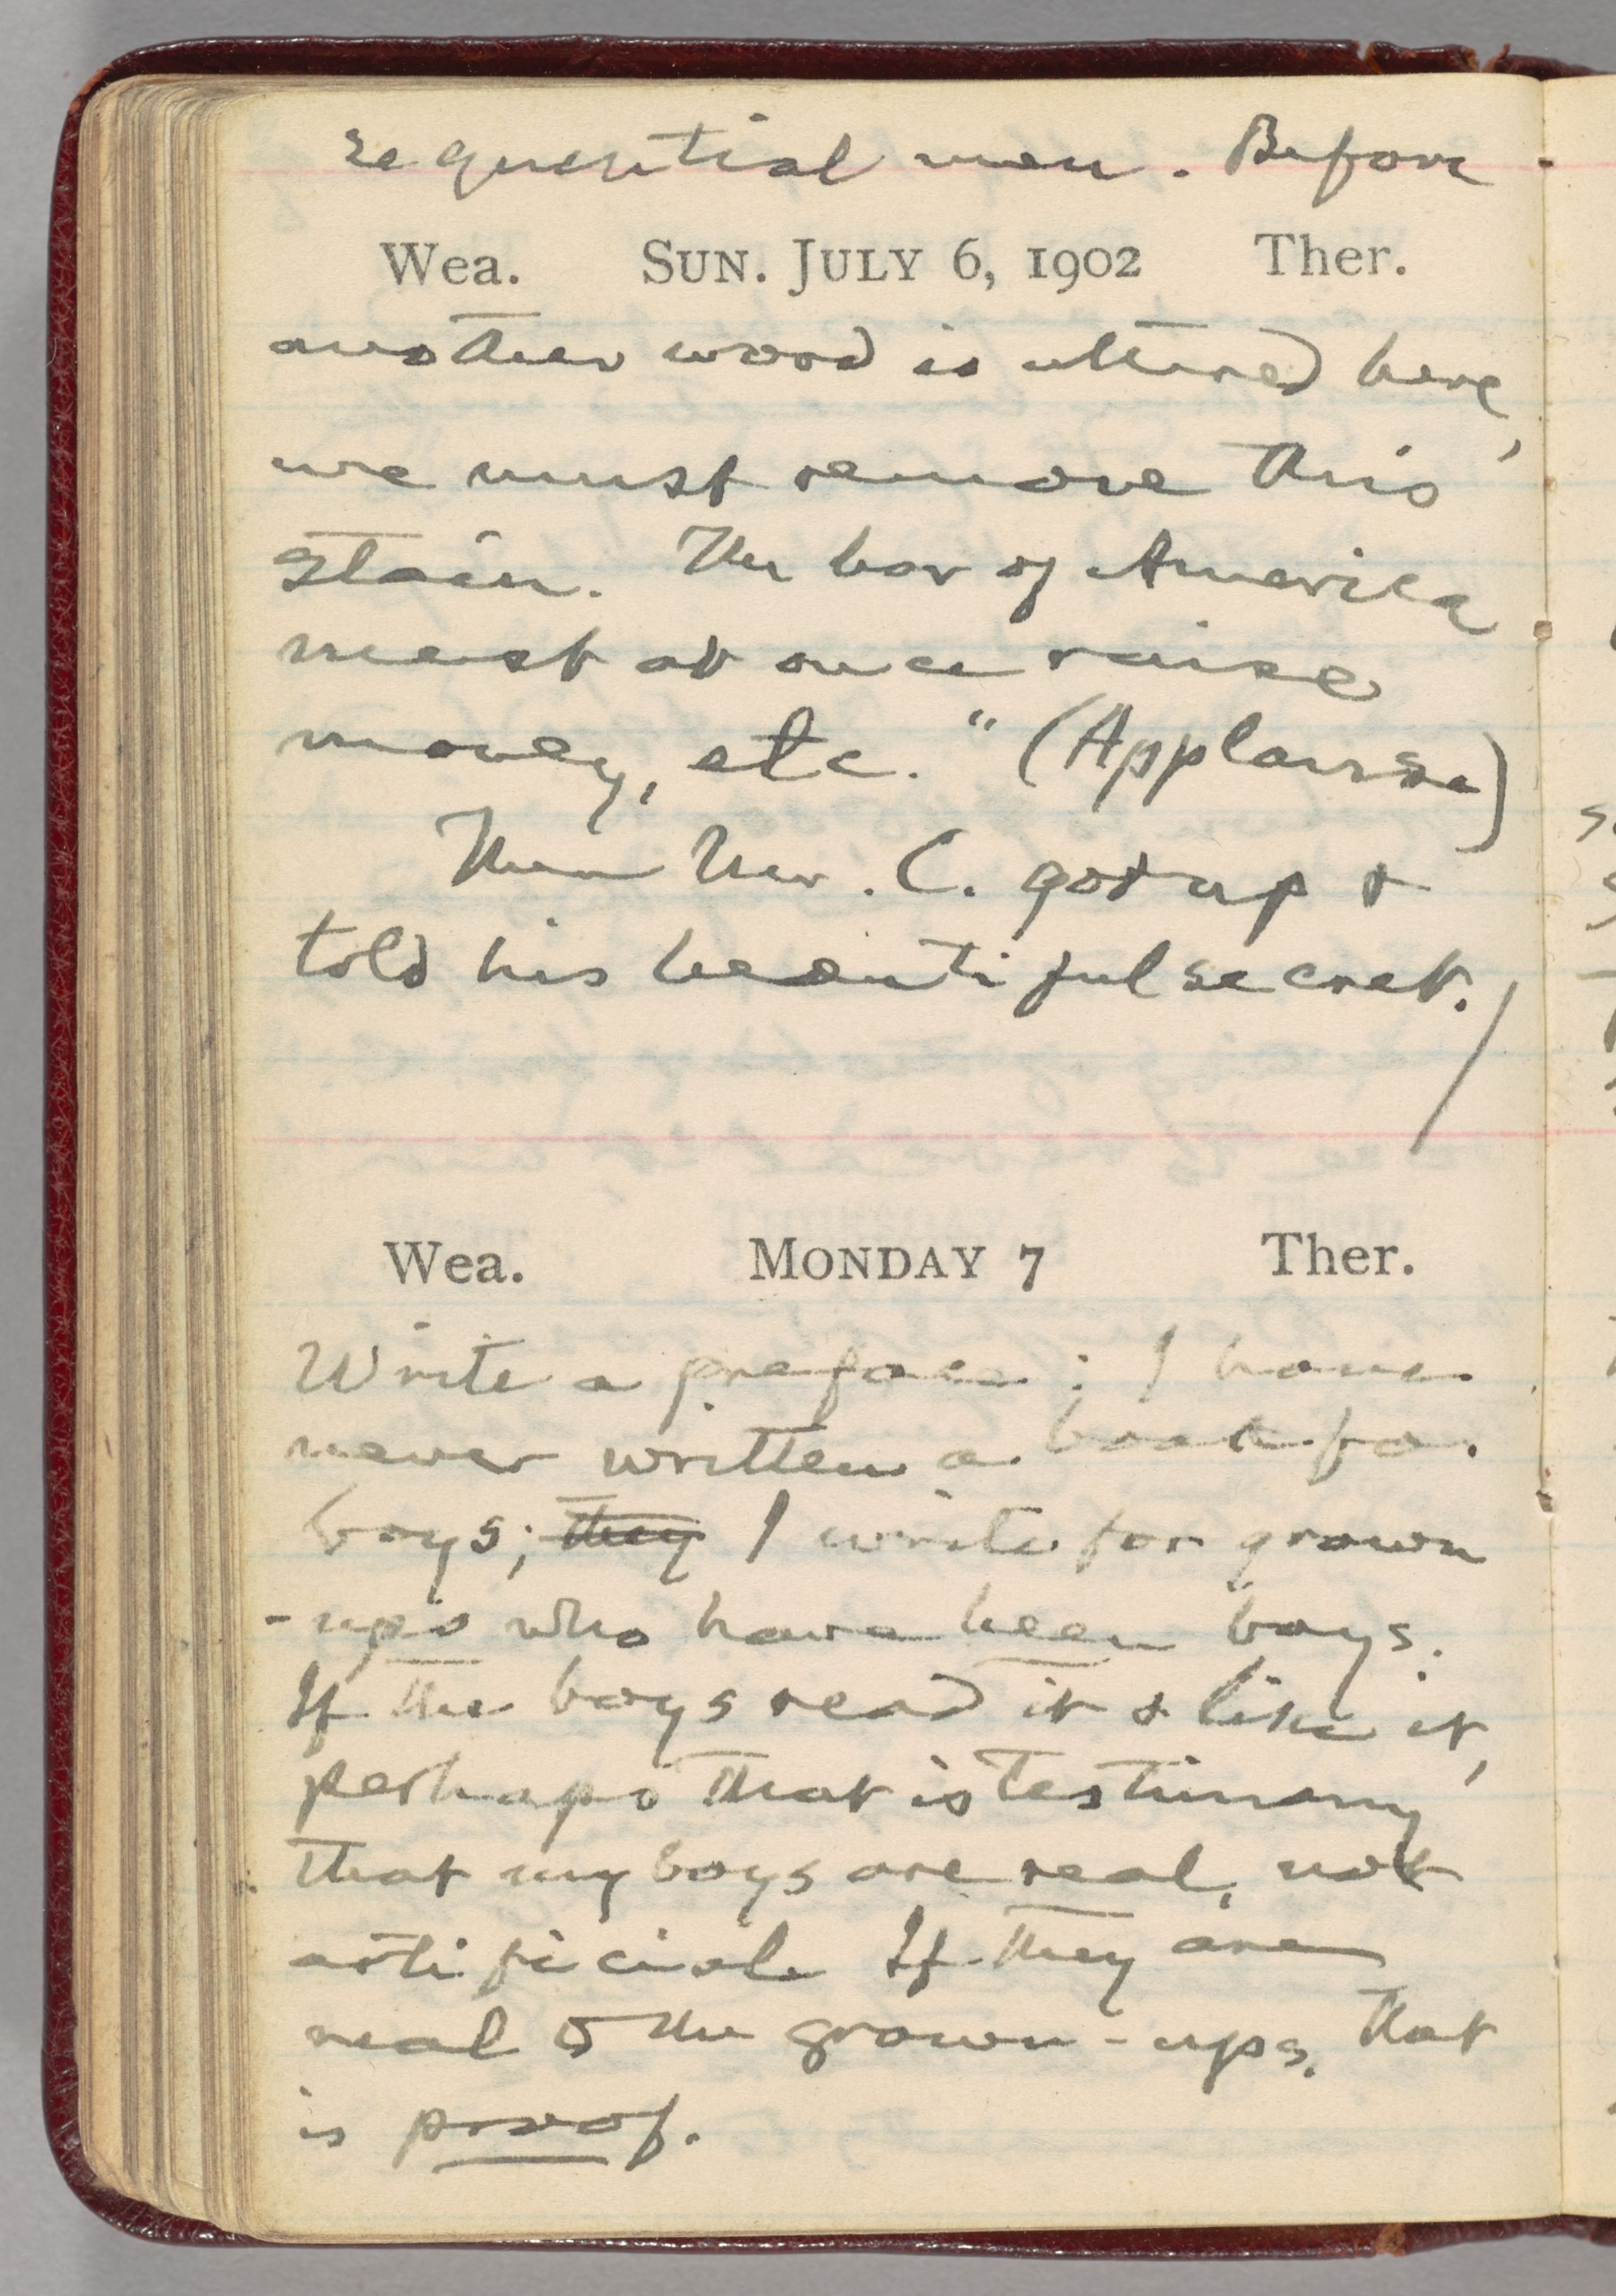 sequential men. Before
Wea. SUN. JULY 6, 1902 Ther.
another word is uttered here,
we must remove this
stain. The bar of America
must at once raise
money, etc." (Applause)
Then Mr. C. got up &
told his beautiful secret.
Wea. MONDAY 7 Ther.
Write a preface: I have
never written a book for
boys; they I write for grown
-ups who have been boys.
If the boys read it & like it,
perhaps that is testimony
that my boys are real, not
artificial. If they are
real to the grown-ups, that
is proof.